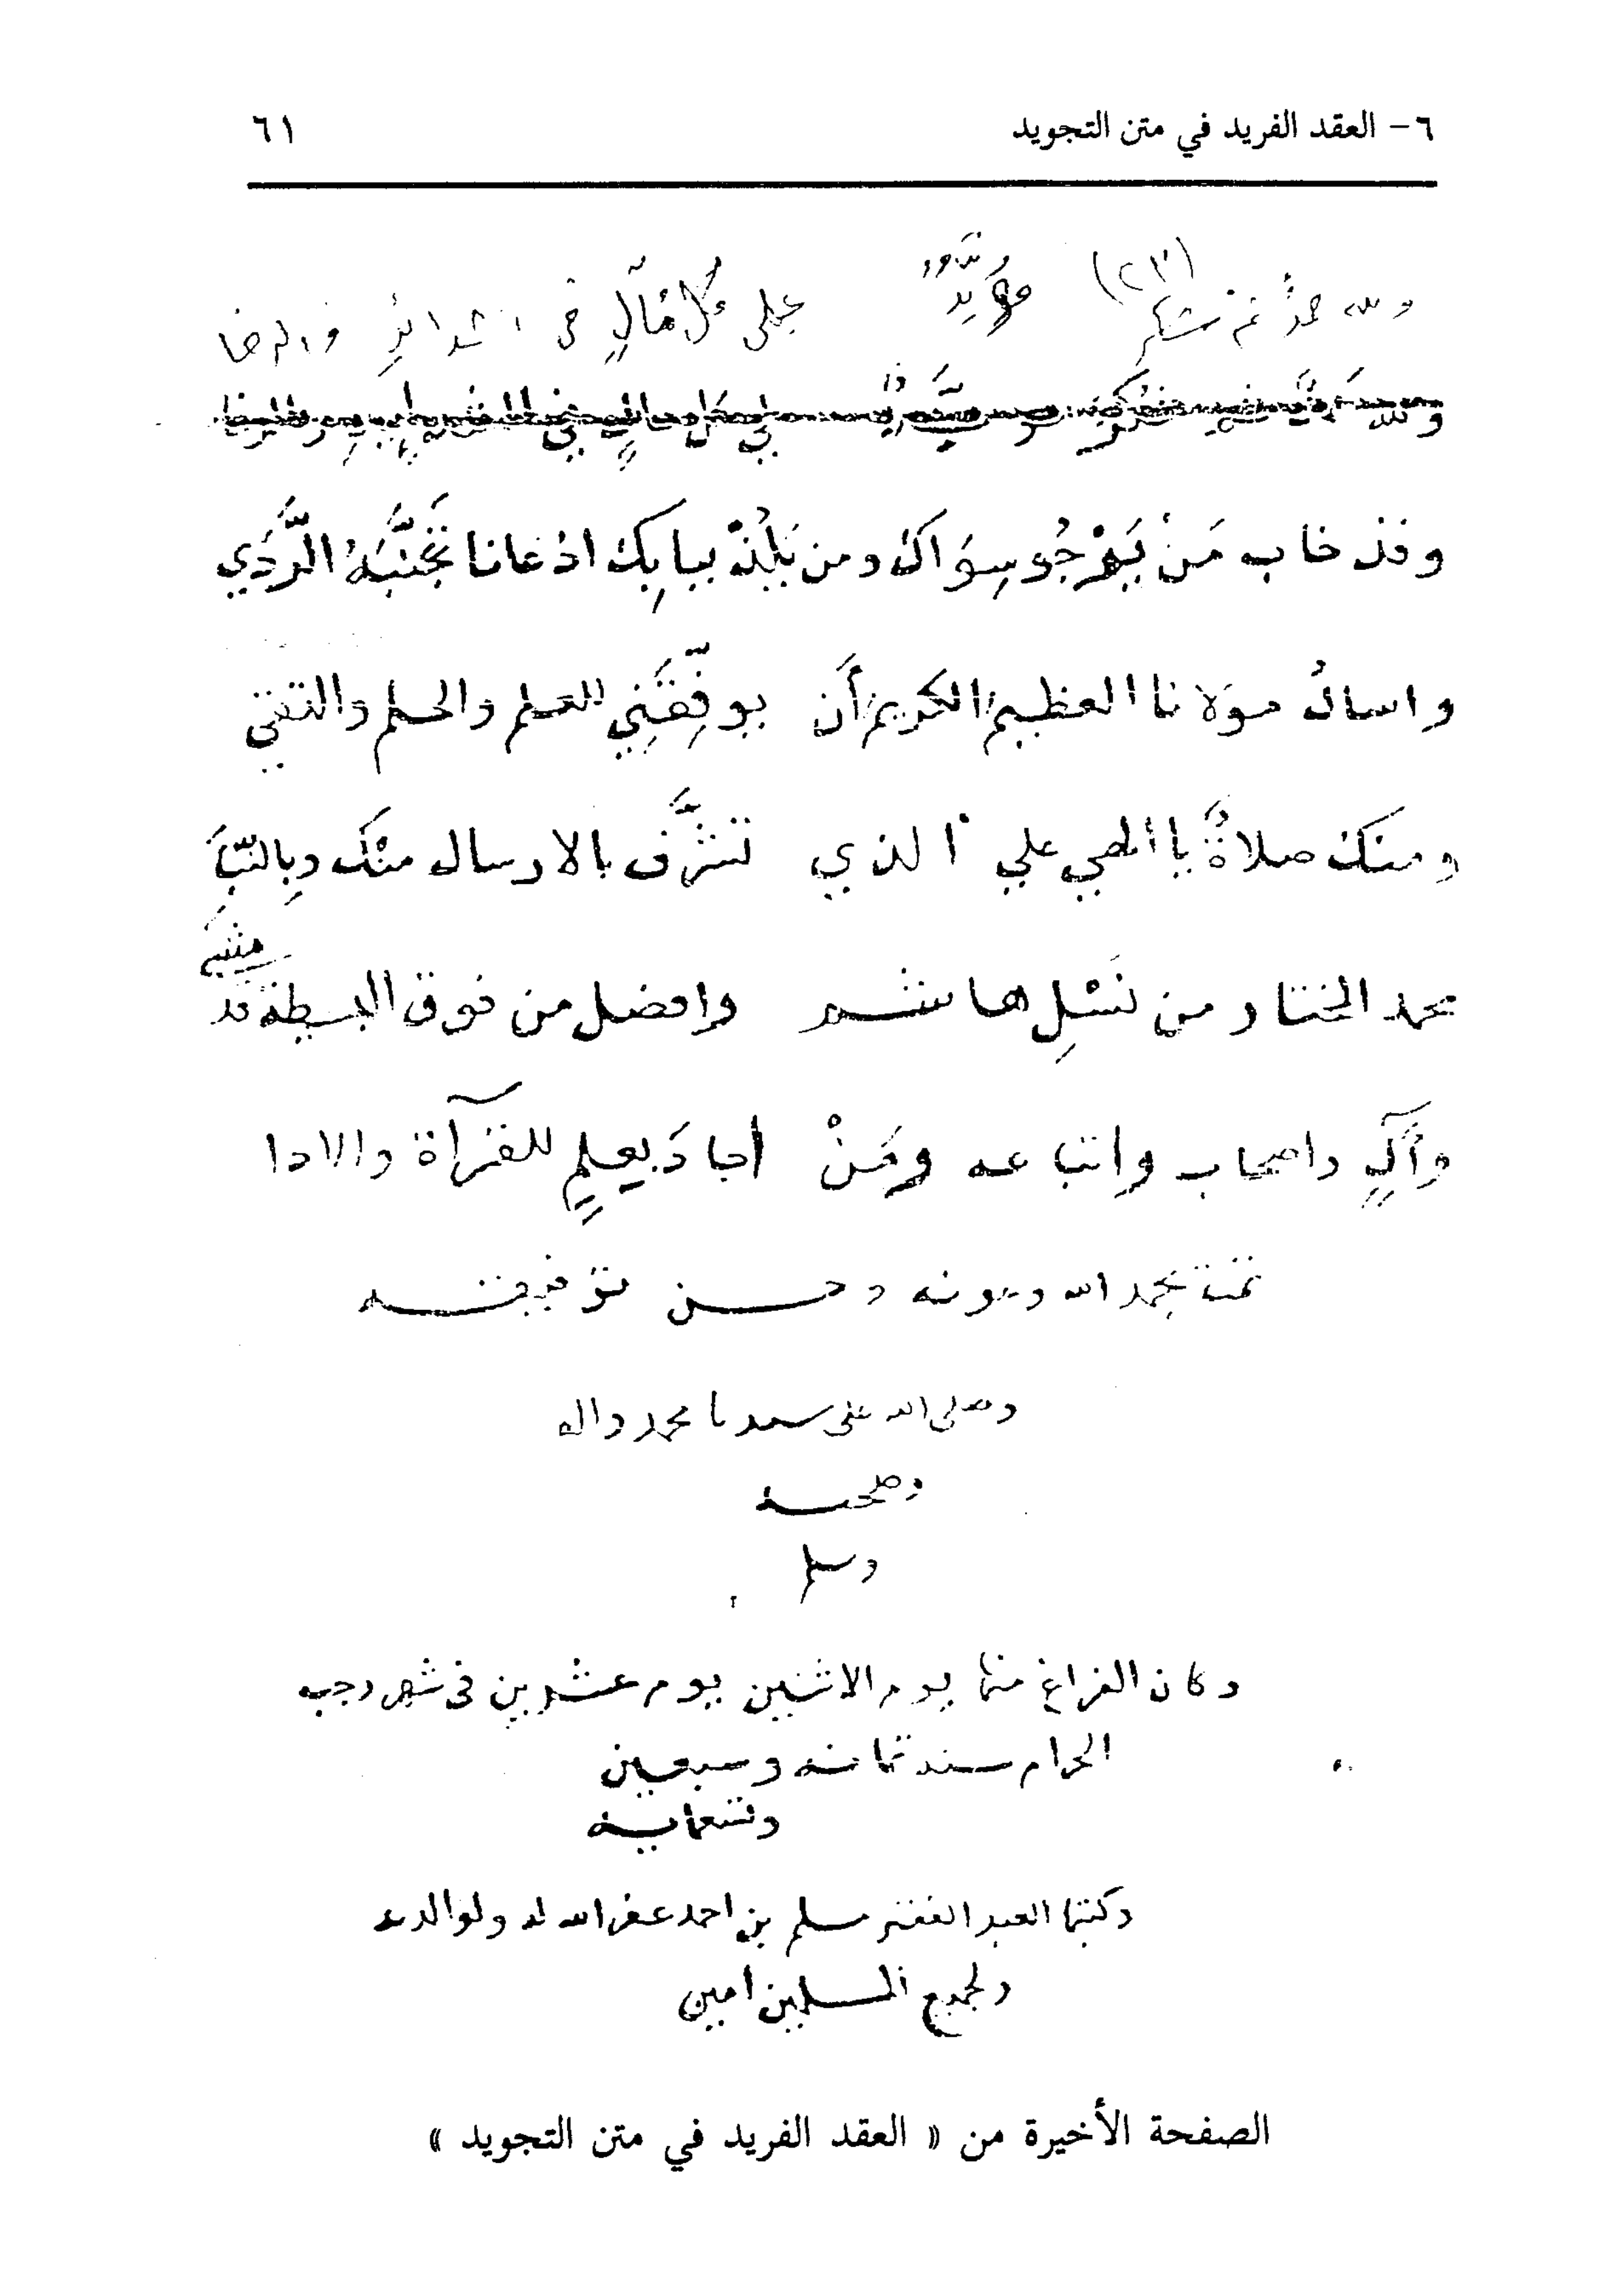 ٦- العقد الفريد في متن التجويد ٦١
(٢٣)
ولله حمدٌ ثم شكر مؤبَّدٌ على كل حالٍ في الشدائدِ والرضا
وقد خاب مَنْ يَرْجُو سِوَاكَ ومن يَلُذْ ببابِكَ اذعانا تَجَنَّبَهُ الرَّدَي
واسالُ موَلانا العظيمَ الكريم أَن يوفِّقَنِي للعلم والحلم والتقي
ومنك صلاةٌ يا الهي علي الذي تشرَّف بالارسال منْكَ وبِالنَّبَا
محمد المختار من نَسْلِ هاشم وافضل من فوق البسيطة قد مشي
وآلٍ واصحاب واتباعه ومَنْ اجادَ بعلمٍ للقرآة والادا
تمت بحمد الله وعونه وحسن توفيقه
وصلى الله على سيدنا محمد واله
وصحبه
وسلم
وكان الفراغ منها يوم الاثنين يوم عشرين في شهر رجب
الحرام سنة ثمانية وسبعين
وتسعماية
وكتبها العبد الفقير مسلم بن احمد عفر الله له ولوالديه
ولجميع المسلمين امين
الصفحة الأخيرة من « العقد الفريد في متن التجويد »